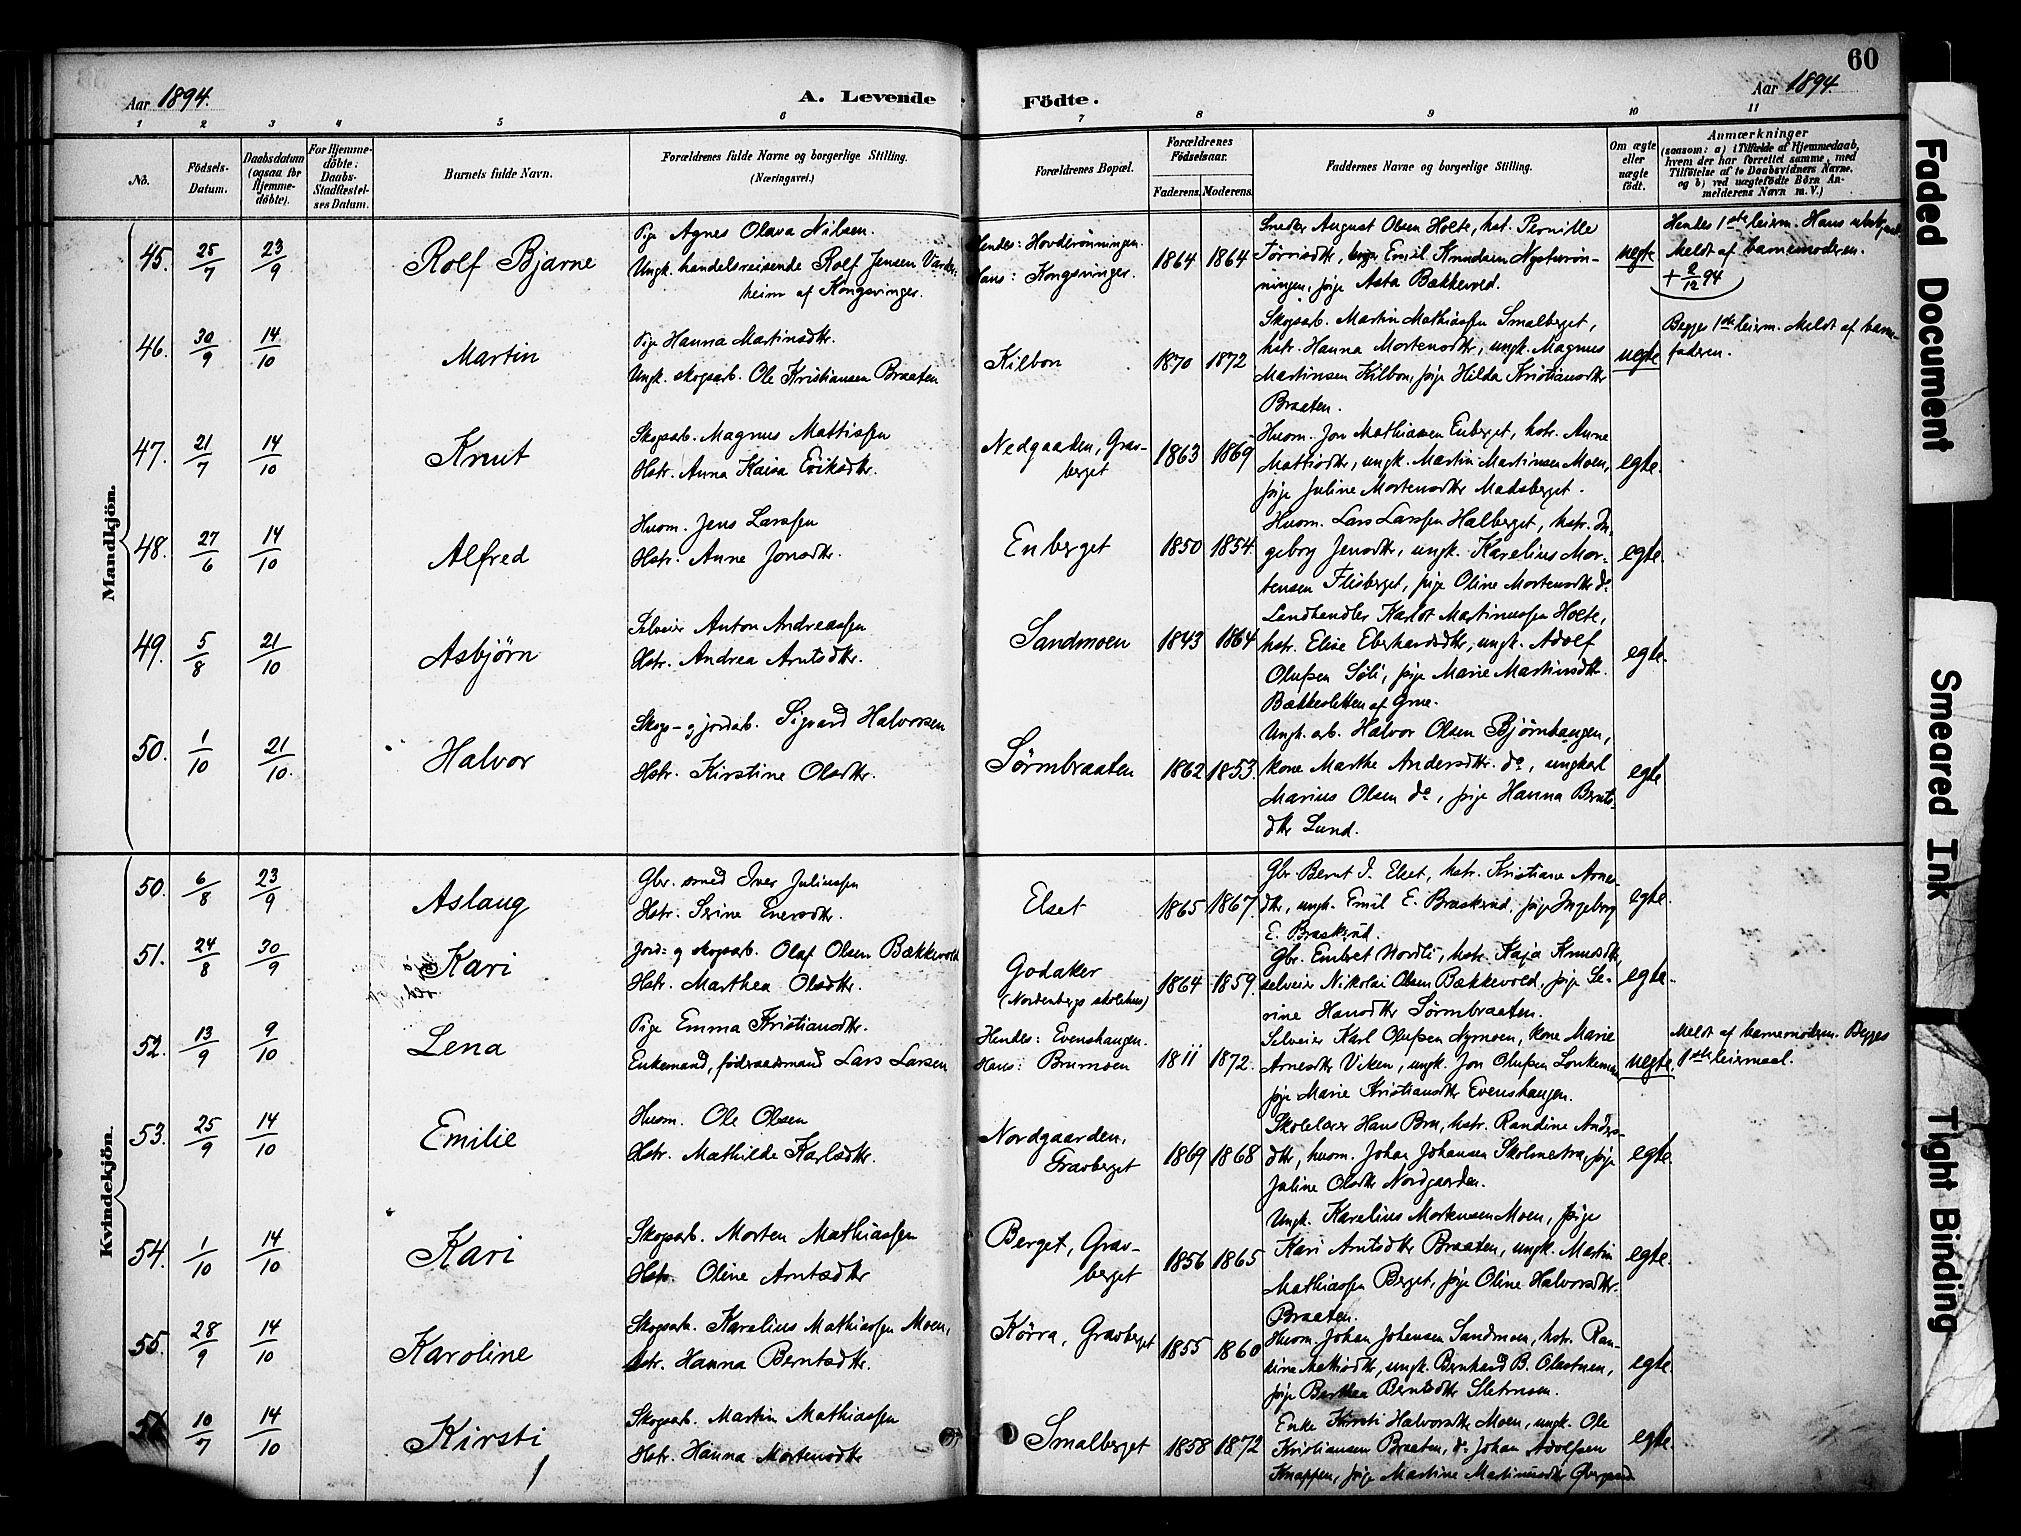 60
Aar 1894.
A. Levende Födte.
Aar 1894.
1 2 3 4 5 6 7 8 9 10 11
No.
Födsels-Datum.
Daabsdatum (ogsaa for Hjemme-döbte).
For Hjemme-döbte: Daabs-Stadfæstel-ses Datum.
Barnets fulde Navn.
Forældrenes fulde Navne og borgerlige Stilling. (Næringsvei.)
Forældrenes Bopæl.
Forældrenes Födselsaar.
Faderens. Moderens.
Faddernes Navne og borgerlige Stilling.
Om ægte eller uægte födt.
Anmærkninger
(saasom: a) i Tilfælde af Hjemmedaab, hvem der har forrettet samme, med Tilföielse af to Daabsvidners Navne, og b) ved uægtefödte Börn An-melderens Navn m. V.)
Mandkjön.
45. 25/7 23/9 Rolf Bjarne
Pige Agnes Olava Nilsen.
Ungk. handelsreisende Rolf Jensen
heim af Kongsvinger.
Hendes: Hovderønningen.
Hans: Kongsvinger.
1864 1864
Smeder August Olsen Holte, hst. Pernille
Emil Knudsen Nysturøn-
ningen, pige Asta Bækkevold.
uegte
Hendes 1ste leierm. Hans
Meldt af barnemoderen.
+ 2/12 94
46. 30/9 14/10 Martin
Pige Hanna Martinsdtr.
Ungk. skogsarb. Ole Kristiansen Braaten
Kilbon
1870 1872
Skogsarb. Martin Mathiassen Smalberget,
hstr. Hanna Mortensdtr, ungk. Magnus
Martinsen Kilbon, pige Hilda Kristiansdtr
Braaten.
uegte
Begges 1ste leierm. Meldt af barne-
faderen.
47. 21/7 14/10 Knut
Skogsarb. Magnus Mattissen
Hstr. Anna Kaisa Eriksdtr.
Nedgaarden, Grav-
berget
1863 1869
Huom. Jon Mathiassen Enberget, hstr. Anne
Mattisdtr, ungk. Martin Martinsen Moen,
pige Juline Mortensdtr Madsberget.
egte.
48. 27/6 14/10 Alfred
Huom. Jens Larssen
Hstr. Anne Jonsdtr.
Enberget
1850 1854.
Huom. Lars Larssen Halberget, hstr. In-
geborg Jensdtr, ungk. Karelius Mor-
tensen Flisberget, pige Oline Mortensdtr do
egte.
49. 5/8 21/10 Asbjørn
Selveier Anton Andreassen
Hstr. Andrea Arntsdtr.
Sandmoen
1843 1864
Landhandler Karlot Martinussen Holte,
hstr. Elise Eberhardsdtr, ungk. Adolf
Olufsen Søli, pige Marie Martinsdtr.
Bækkesletten af Grue.
egte.
50. 1/10 21/10. Halvor
Skogs- og jordarb. Sigvard Halvorsen
Hstr. Kirstine Olsdtr.
Sørmbraaten
1862 1853.
Ungk. arb. Halvor Olsen Bjørnhaugen,
kone Marthe Andersdtr. do, ungkarl
Marius Olsen do, pige Hanna Bernts-
dtr Lund.
egte
Kvindekjön.
50. 6/8 23/9 Aslaug
Gbr. smed Iver Juliussen
Hstr. Serine Eversdtr.
Elset
1865 1867.
Gbr Bernt I. Elset, hstr. Kristiane Arnes-
dtr, ungk. Emil E. Braskerud, pige Ingeborg
E. Braskerud.
egte.
51. 24/8 30/9 Kari
Jord- og skogsarb. Olaf Olsen Bækkevold
Hstr. Marthea Olsdtr.
Godaker
(Nordenbergs skolehus)
1864 1859.
Gbr. Embret Nordli, hstr. Kaja Knudsdtr,
selveier Nikolai Olsen Bækkevold, pige Se-
rine Hansdtr Sørmbraaten.
egte.
52. 13/9 9/10 Lena
Pige Emma Kristiansdtr.
Enkemand, føderaadsmand Lars Larsen
Hendes: Evenshaugen.
Hans: Brumoen
1811 1872.
Selveier Karl Olufsen Nymoen, kone Marie
Arnesdtr Viken, ungk. Jon Olufsen
pige Marie Kristiansdtr Evenshaugen.
uegte.
Meldt af barnemoderen. Begges
1ste leiermaal.
53. 25/9 14/10 Emilie
Huom. Ole Olsen
Hstr. Mathilde Karlsdtr.
Nordgaarden,
Gravberget
1869 1868
Skolelærer Hans Bru, hstr. Randine Anders-
dtr, huom. Johan Johansen Skolmestra, pige
Juline Olsdtr Nordgaarden.
egte.
54. 1/10 14/10 Kari
Skogsarb. Morten Mathiassen
Hstr. Oline Arntsdtr
Berget, Grav-
berget
1856 1865
Ungk. Karelius Mortensen Moen, pige
Kari Arntsdtr Braaten, ungk. Martin
Mathiassen Berget, pige Oline Halvorsdtr.
Braaten.
egte.
55. 28/9 14/10 Karoline
Skogsarb. Karelius Mathiassen Moen,
hstr. Hanna Berntsdtr.
Kørra, Gravberget
1855 1860
Huom. Johan Johansen Sandmoen, hstr. Ran-
dine Mattisdtr, ungk. Bernhard B. Olastuen,
pige Berthea Berntsdtr Sletmoen.
egte.
10/7 14/10 Kirsti
Skogsarb. Martin Mathiassen
Hstr. Hanna Mortensdtr
Smalberget
1858 1872
Enke Kirsti Halvorsdtr Moen, ungk. Ole
Kristiansen Braaten, do Johan Adolfsen
Knappen, pige Martine Martinusdtr
egte.
Faded Document
Smeared Ink
Tight Binding